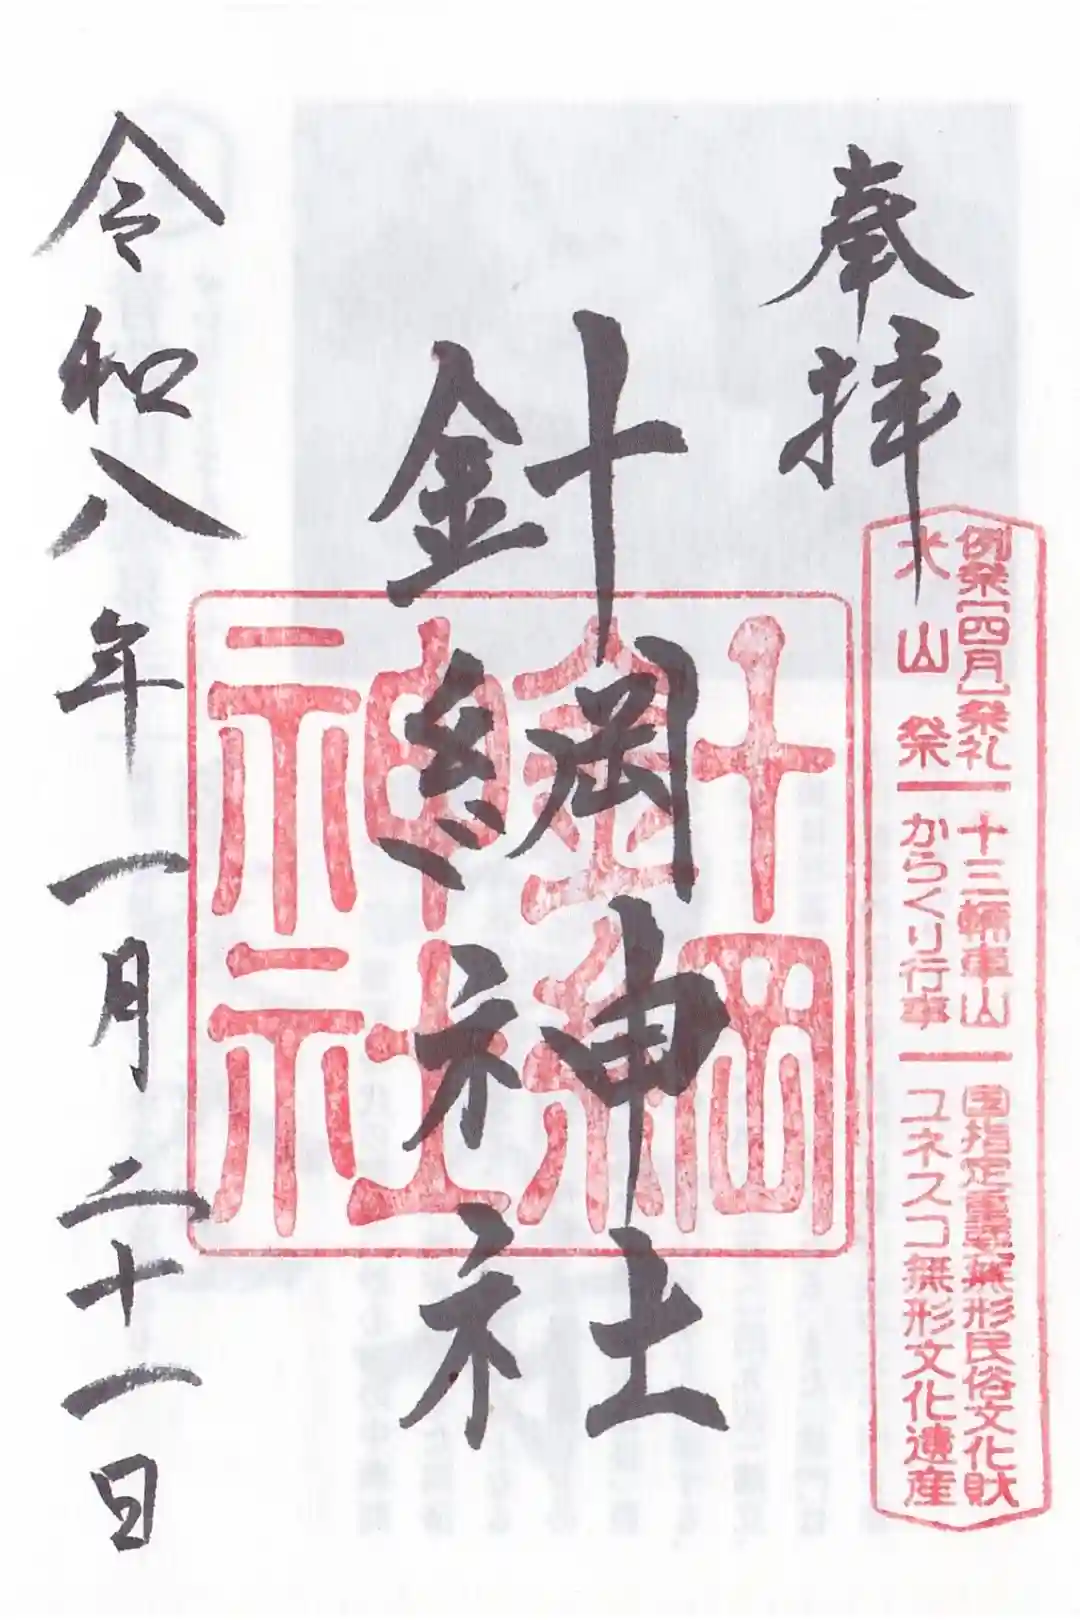 奉拝
例祭[四月]祭礼 十三輛車山 国指定重要無形民俗文化財
犬山祭 からくり行事 ユネスコ無形文化遺産
針綱神社
針綱
神社
令和八年一月二十一日